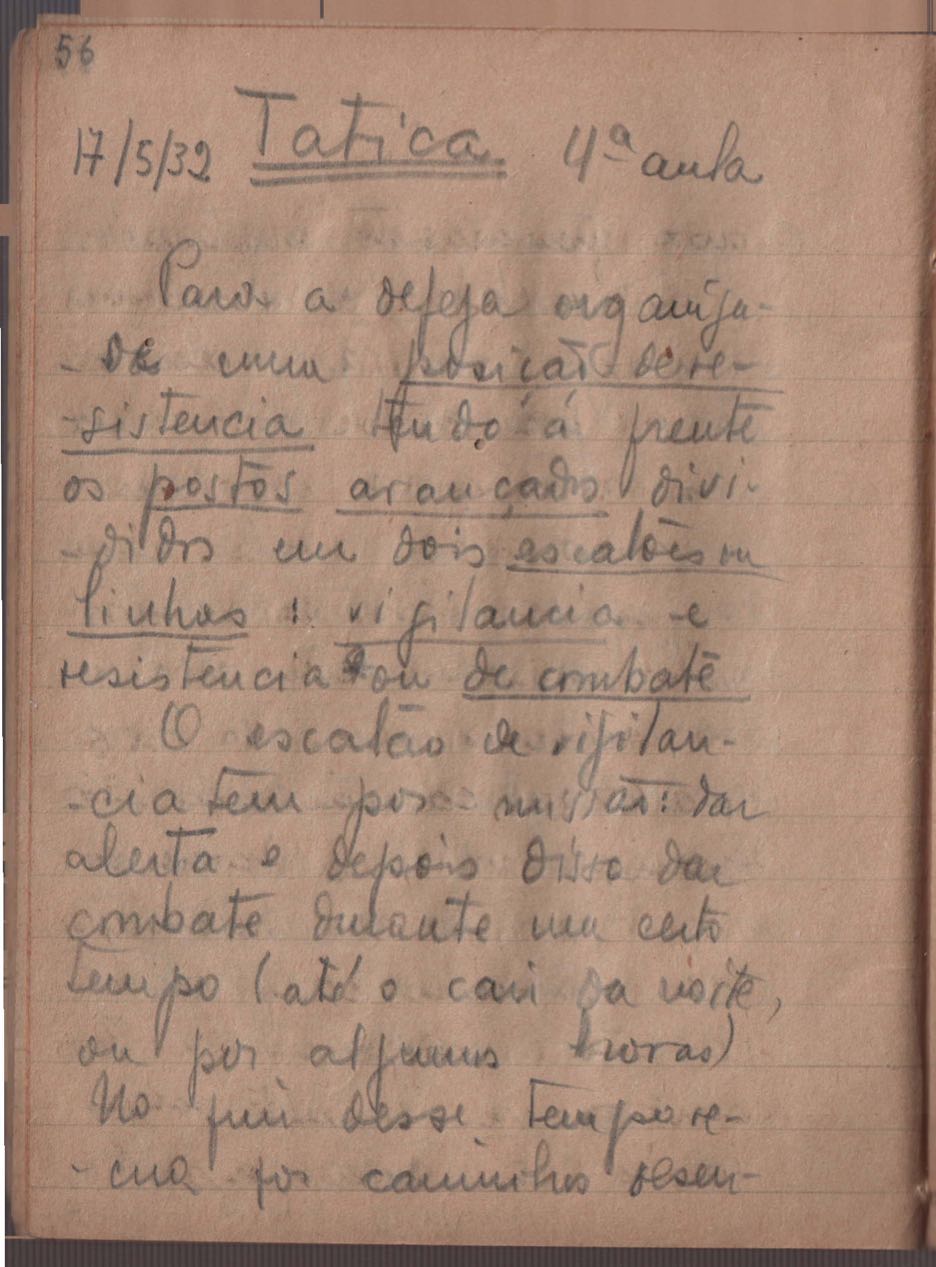 56
17/5/32 Tatica 4ª aula
Para a defeza organiza-
-se uma posição de re-
-sistencia tendo á frente
os postos avançados divi-
-didos em dois escalões ou
linhas: vigilancia e
resistencia ou de combate
O escalão de vigilan-
-cia tem por missão: dar
alerta e depois disso dar
combate durante um certo
tempo (até o cair da noite,
ou por algumas horas)
No fim desse tempo re-
-cua por caminhos desen-